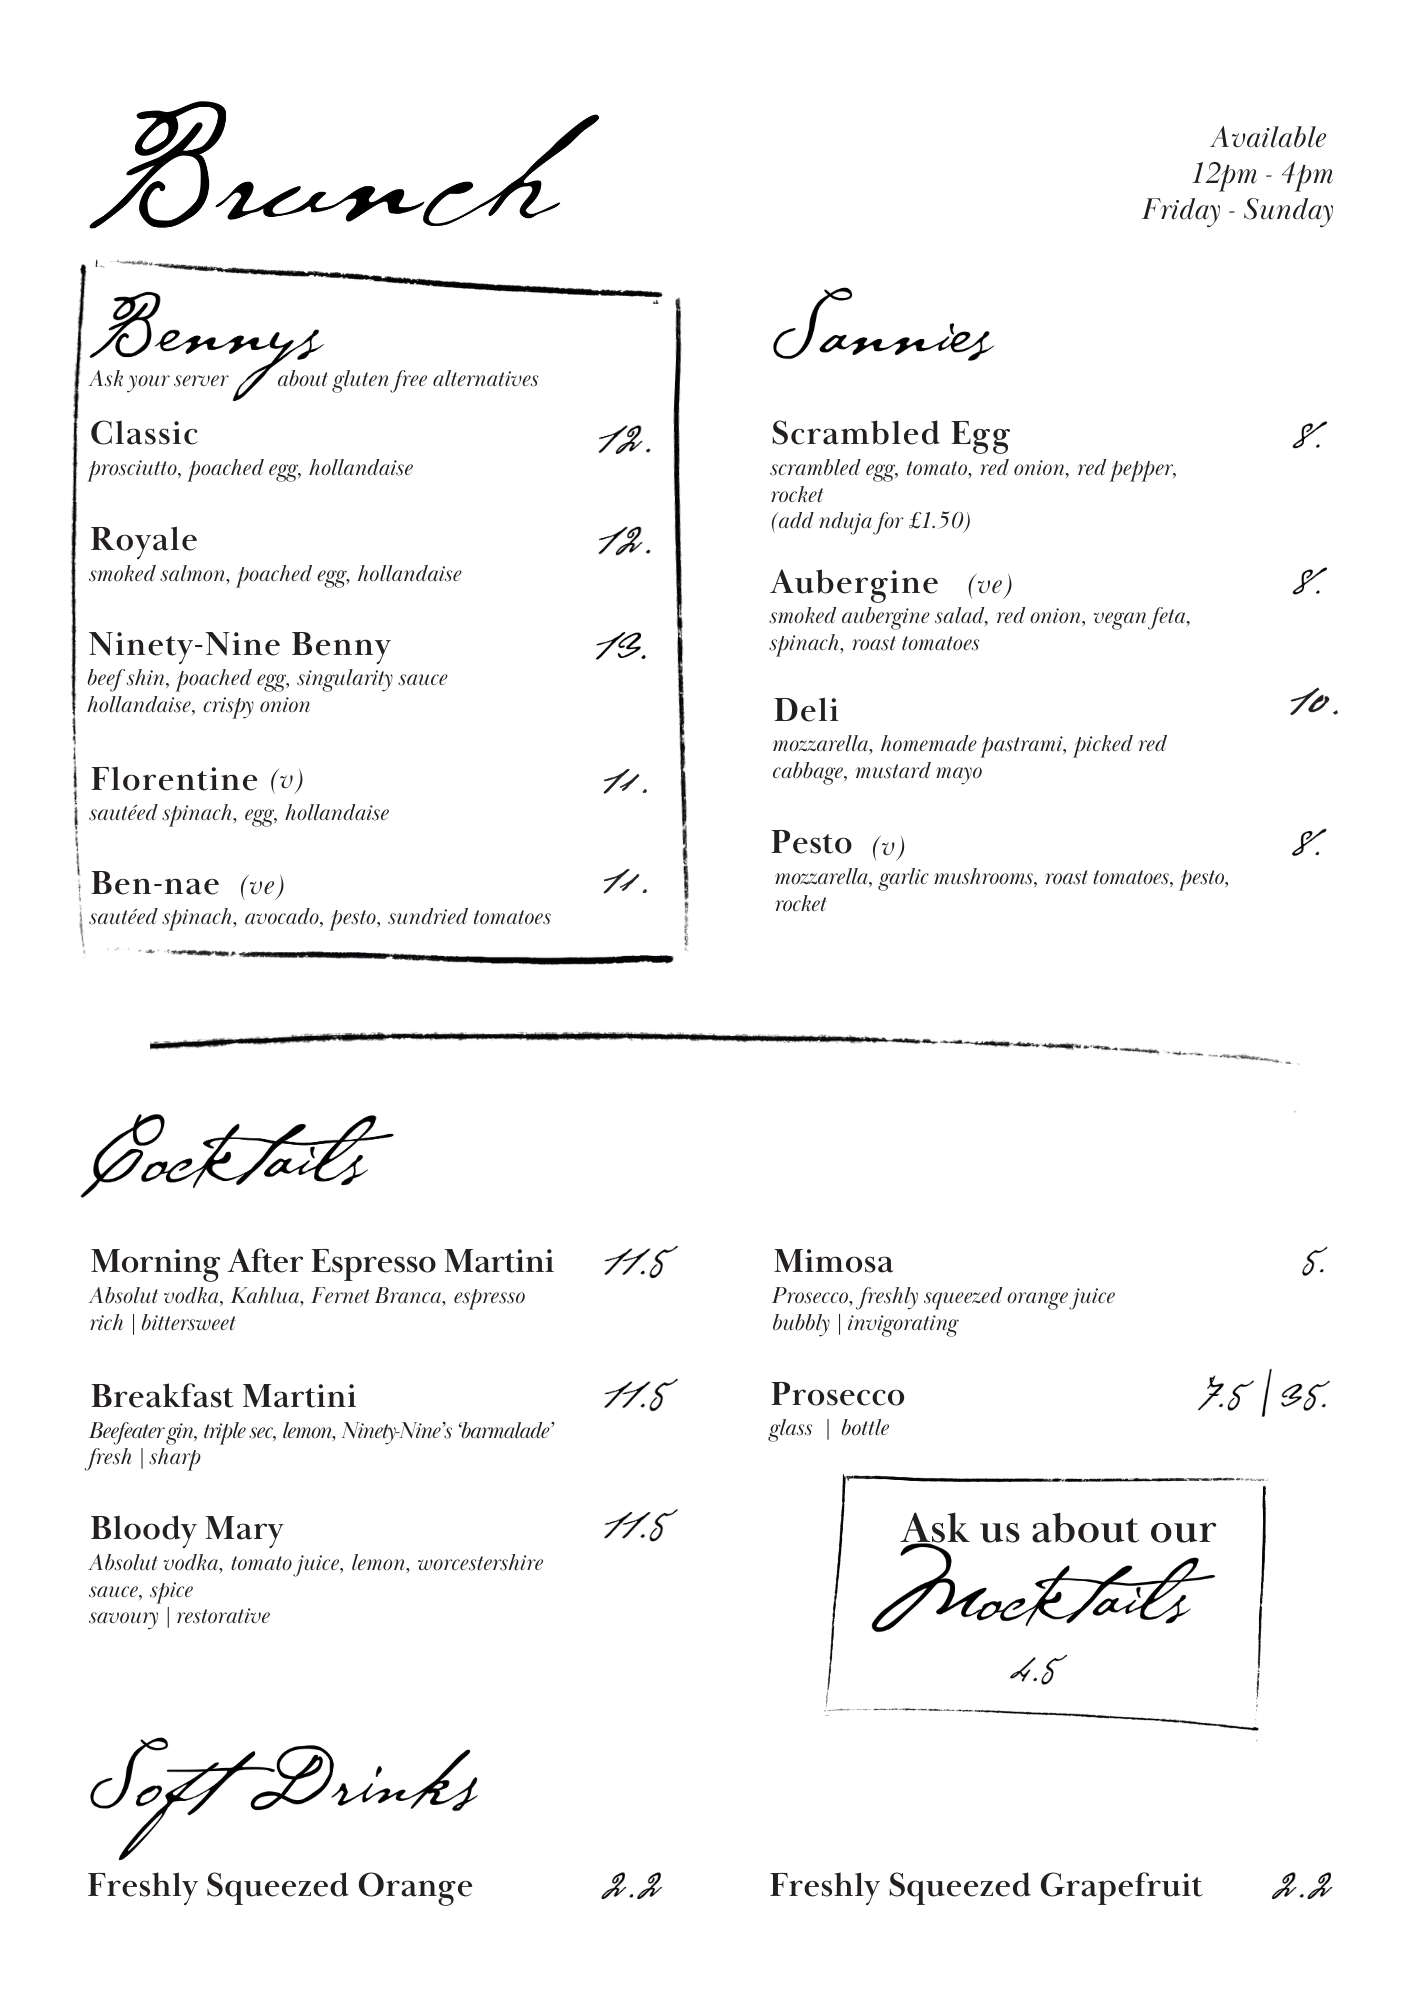 Brunch
Available
12pm - 4pm
Friday - Sunday
Bennys
Ask your server about gluten free alternatives
Classic 12.
prosciutto, poached egg, hollandaise
Royale 12.
smoked salmon, poached egg, hollandaise
Ninety-Nine Benny 13.
beef shin, poached egg, singularity sauce
hollandaise, crispy onion
Florentine (v) 11.
sautéed spinach, egg, hollandaise
Ben-nae (ve) 11.
sautéed spinach, avocado, pesto, sundried tomatoes
Sannies
Scrambled Egg 8.
scrambled egg, tomato, red onion, red pepper,
rocket
(add nduja for £1.50)
Aubergine (ve) 8.
smoked aubergine salad, red onion, vegan feta,
spinach, roast tomatoes
Deli 10.
mozzarella, homemade pastrami, picked red
cabbage, mustard mayo
Pesto (v) 8.
mozzarella, garlic mushrooms, roast tomatoes, pesto,
rocket
Cocktails
Morning After Espresso Martini 11.5
Absolut vodka, Kahlua, Fernet Branca, espresso
rich | bittersweet
Breakfast Martini 11.5
Beefeater gin, triple sec, lemon, Ninety-Nine's 'barmalade'
fresh | sharp
Bloody Mary 11.5
Absolut vodka, tomato juice, lemon, worcestershire
sauce, spice
savoury | restorative
Mimosa 5.
Prosecco, freshly squeezed orange juice
bubbly | invigorating
Prosecco 7.5 | 35.
glass | bottle
Ask us about our
Mocktails
4.5
Soft Drinks
Freshly Squeezed Orange 2.2
Freshly Squeezed Grapefruit 2.2